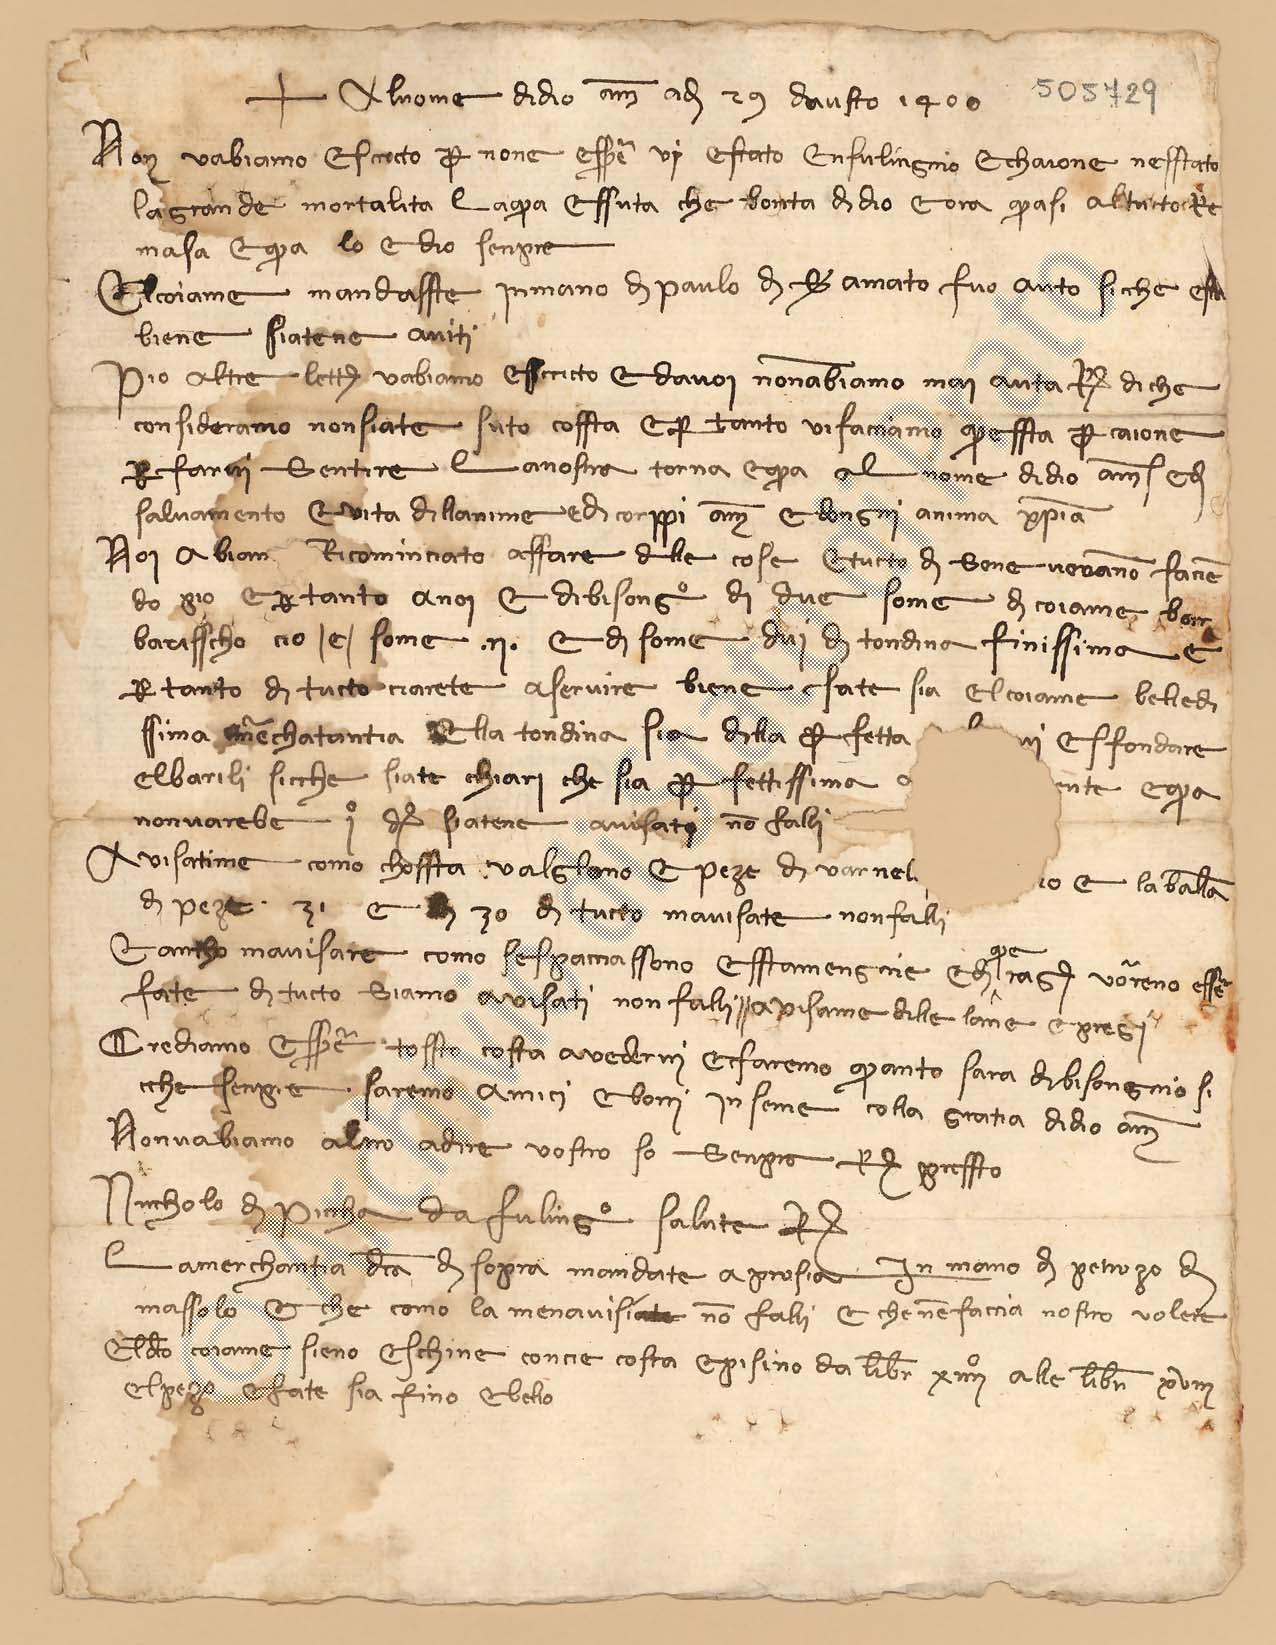 + Al nome di dio am adi 29 dausto 1400
505729
Noy vabiamo escricto p none essere vi estato enfulingnio e chaione nesstato
la grande mortalita la qa essuta che bonta di dio e ora qasi al tucto Re
masa e qa lo e dio senpre
El coiame mandasste in mano di paulo di amato fuo auto sicche esta
biene siatene aviti
Pio altre lett vabiamo escricto e da voi nonabiamo mai auta R di che
consideramo non siate suto cossta e p tanto vi facciamo qessta p caione
R farvi sentire la nostra torna e qa al nome di dio am e di
salvamento e vita dellanime e di corppi am e dongni anima xpiana
Noi abiam Ricominciato affare delle cose e tucto di bene veranno facien
do pio e p tanto a noi e di bisongo di due some di coiame bar
barisscho cio |e| some .ij. e di some dui di tondina finissima e
p tanto di tucto ciarete a servire biene e fate sia el coiame belledi
ssima merchatantia e lla tondina sia della p fetta vi e sfondare
el barili sicche siate chiari che sia p fettissima ente e qa
non varebe i d siatene avisati no falli
Avisatime como chossta valglano e peze di varnel no e la balla
di peze 31 e di 30 di tucto mavisate non falli
E ancho mavisare como se spacciassono e sstamengnie e di qe rag voreno essere
fate di tucto siamo avisati non falli // avisame delle lane e pregi
Crediamo essere tossto costa a vedervi e faremo qanto sara di bisongnio si
cche senpre saremo amici e boni inseme colla gratia di dio am
Non vabiamo altro a dire vostro so senpre R pressto
Nicholo di Piccha da fulingo salute R
La merchantia dca di sopra mandate a prosia in mano di petrozo di
massolo e che como la men avisiate no falli e che ne faccia nostro volere
El dco coiame sieno e schine concie costa e pisino da libr xiiii alle libr xviii
el pezo e fate sia fino e bello